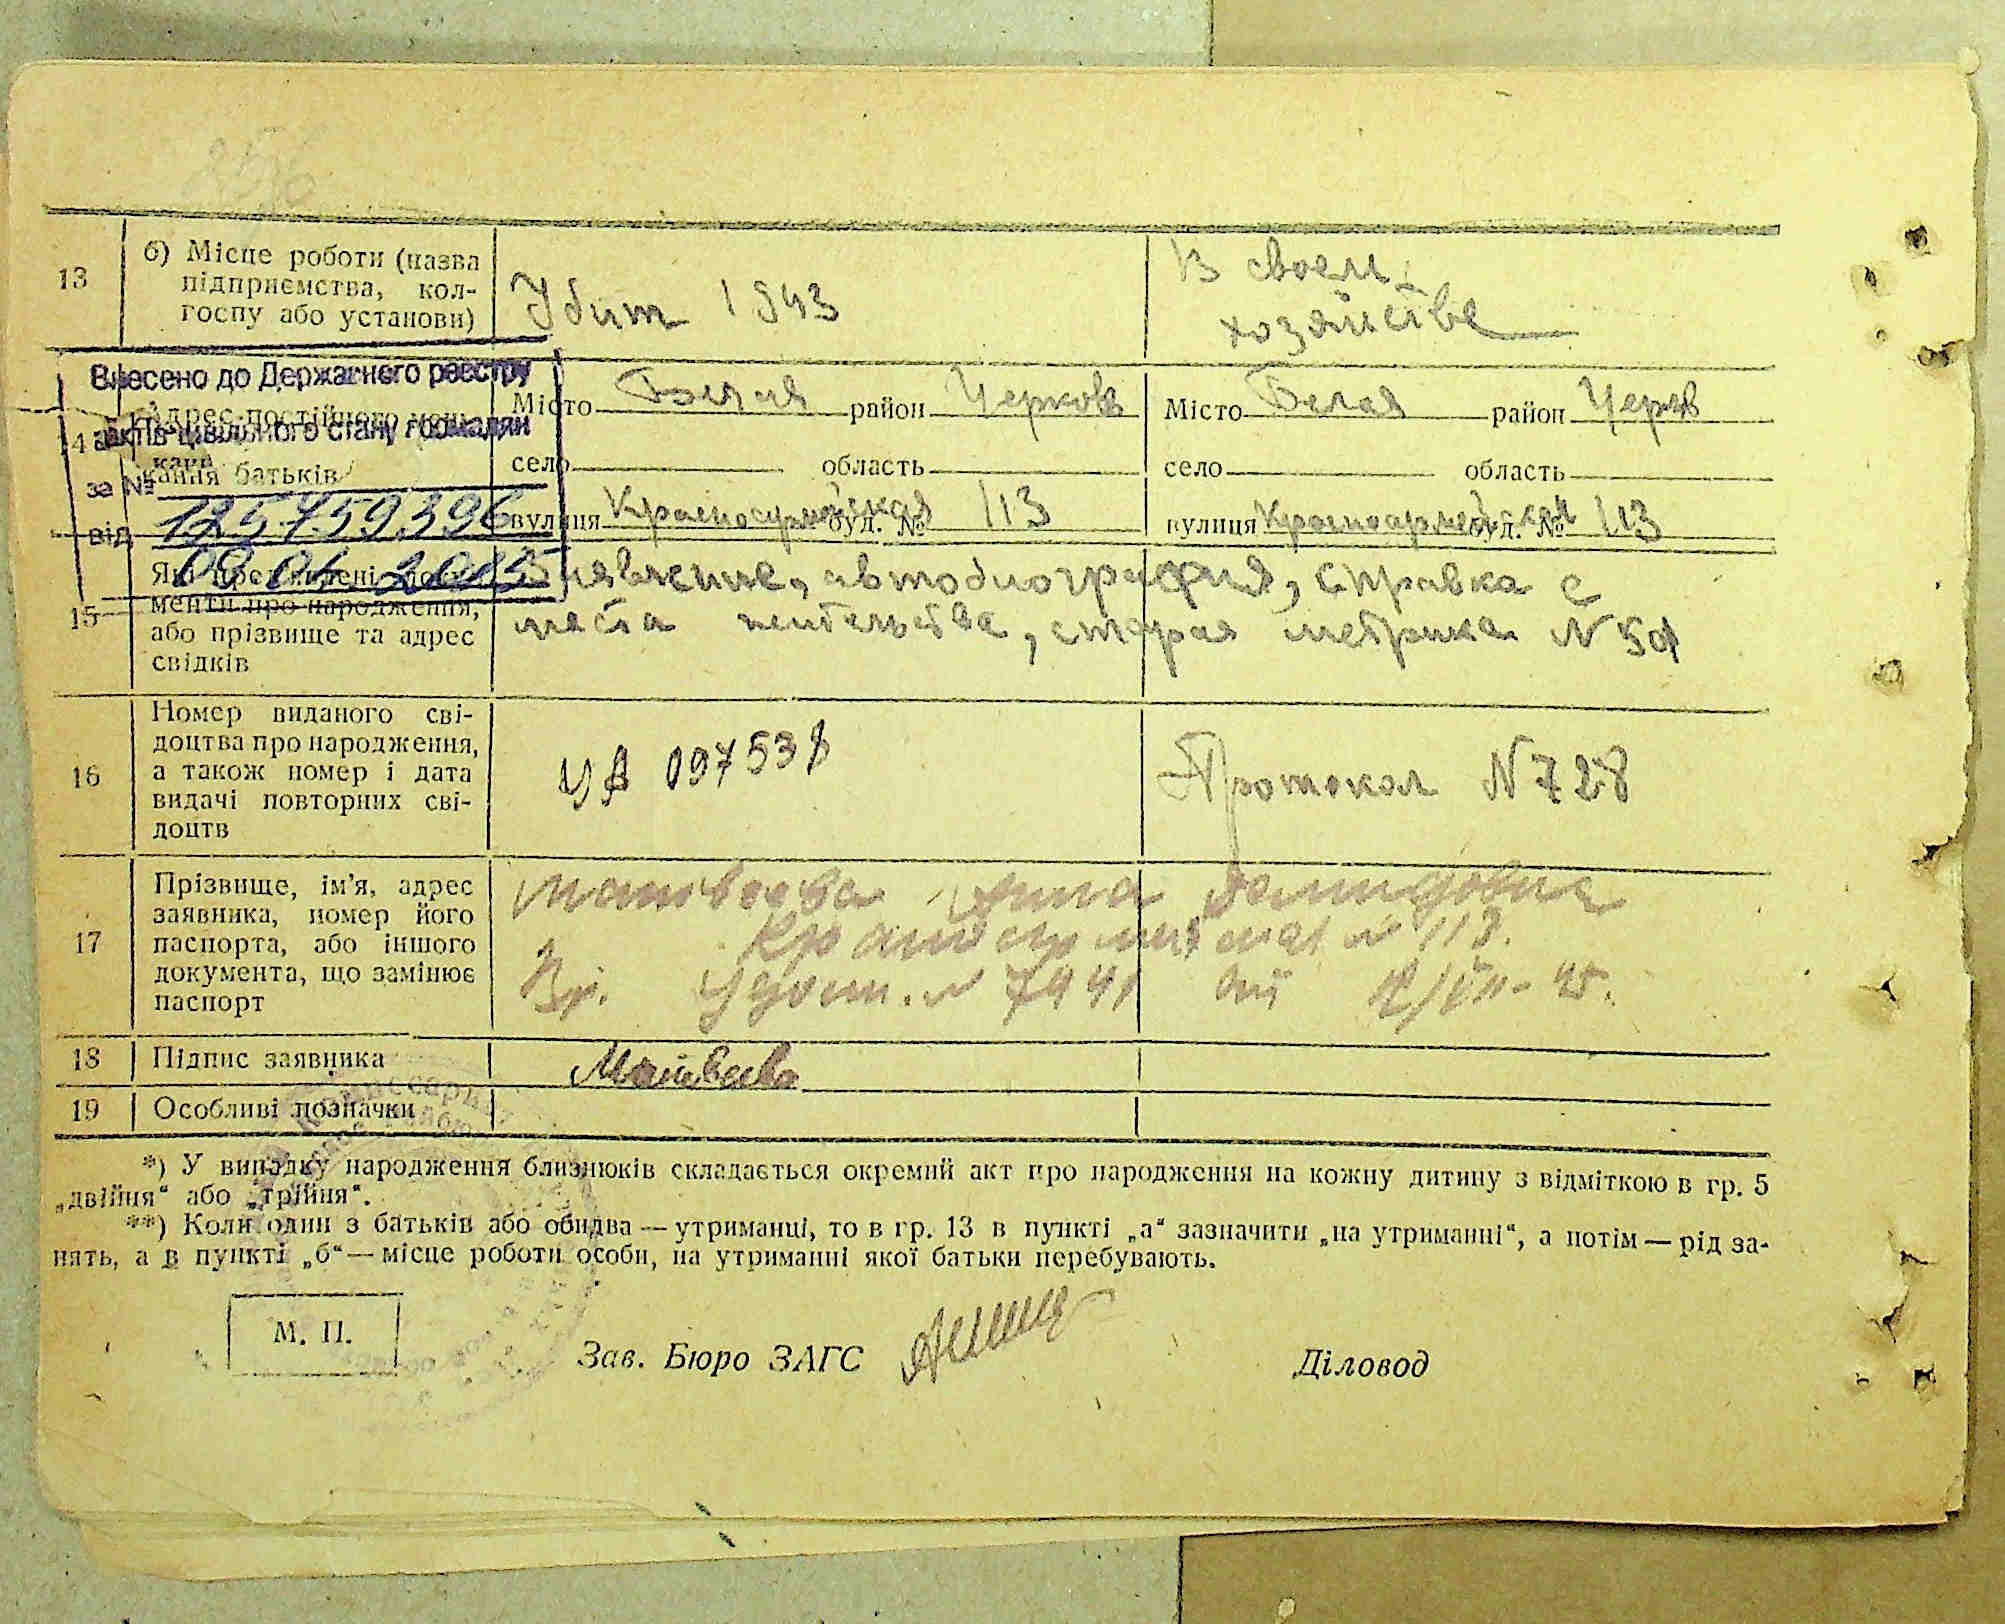 13
б) Місце роботи (назва
підприємства, кол-
госпу або установи)
Убит 1943
В своем
хозяйстве
Внесено до Державного реєстру
актів цивільного стану громадян
за №
125759396
від
14
Адрес постійного меш-
кання батьків
Місто Белая район Церковь
село область
вулиця Красноармейская буд. № 113
Місто Белая район Церков
село область
вулиця Красноармейская буд. № 113
15
Які пред'явлені доку-
менти про народження,
або прізвище та адрес
свідків
Заявление, автобиография, справка с
места жительства, старая метрика N 51
16
Номер виданого сві-
доцтва про народження,
а також номер і дата
видачі повторних сві-
доцтв
097538
Протокол N 728
17
Прізвище, ім'я, адрес
заявника, номер його
паспорта, або іншого
документа, що замінює
паспорт
Матвеева Анна Демидовна
№ 113.
Вр. Удост. № 7441
18
Підпис заявника
Матвеева
19
Особливі позначки
*) У випадку народження близнюків складається окремий акт про народження на кожну дитину з відміткою в гр. 5
„двійня“ або „трійня“.
**) Коли один з батьків або обидва — утриманці, то в гр. 13 в пункті „а“ зазначити „на утриманні“, а потім — рід за-
нять, а в пункті „б“ — місце роботи особи, на утриманні якої батьки перебувають.
М. П.
Зав. Бюро ЗАГС
Діловод